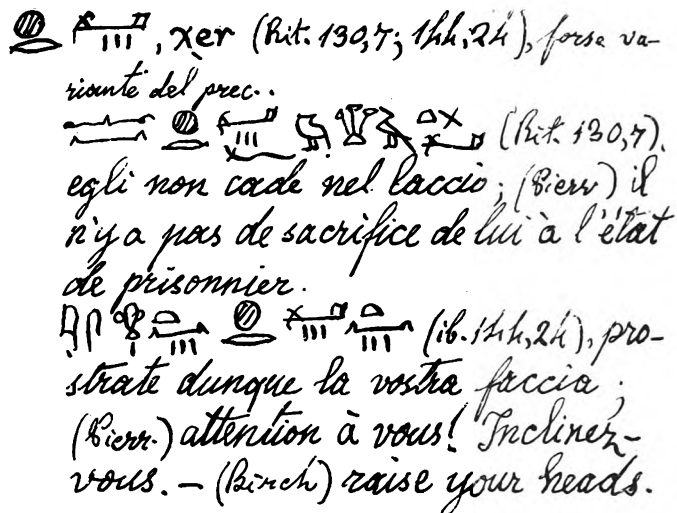 , χer (Rit. 130,7; 144,24), forse va-
riante del prec..
(Rit. 130,7).
egli non cade nel laccio; (Pierr) il
n'y a pas de sacrifice de lui à l'état
de prisonnier.
(ib. 144,24), pro-
strate dunque la vostra faccia;
(Pierr.) attention à vous! Inclinez-
vous. — (Birch) raise your heads.